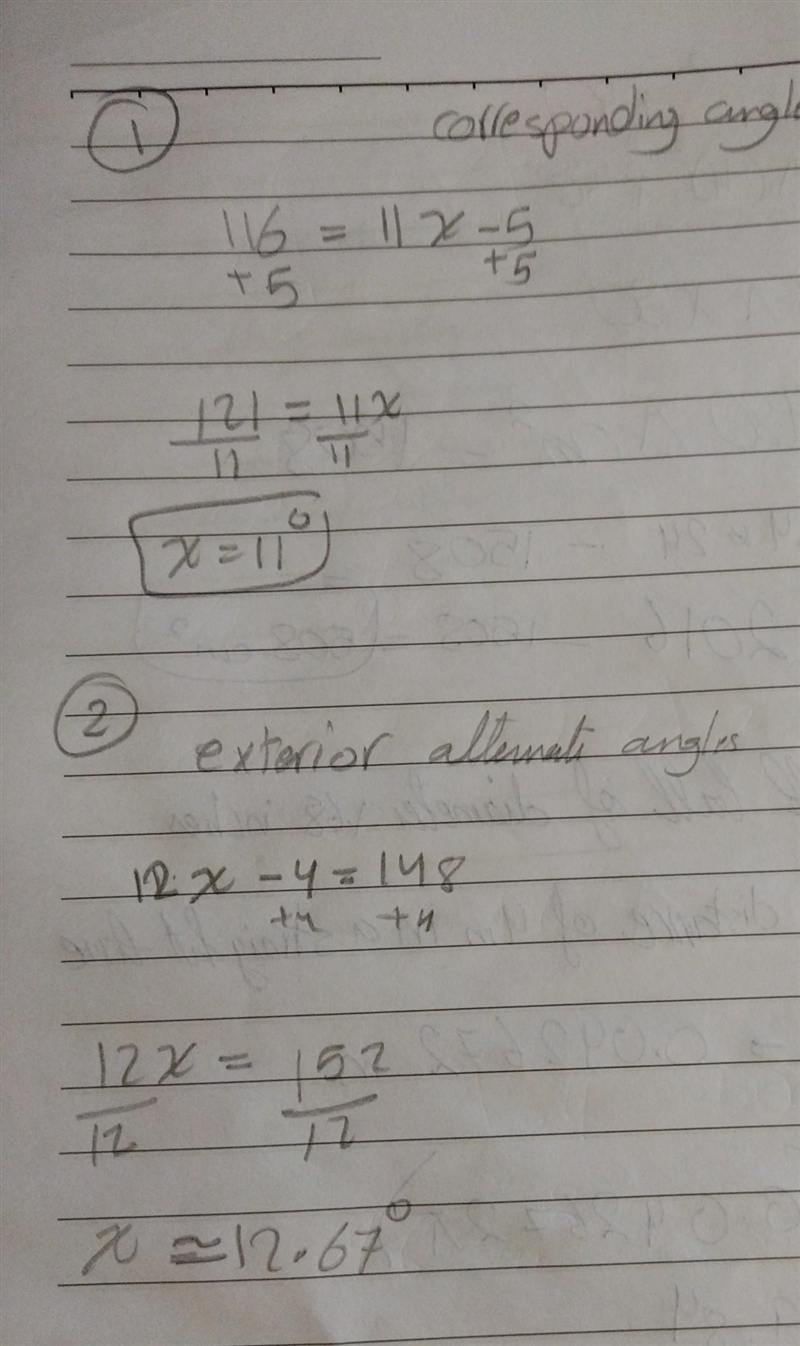 1
corresponding angle
116 = 11x - 5
+5 +5
121 = 11x
11 11
x = 11°
2
exterior alternate angles
12x - 4 = 148
+4 +4
12x = 152
12 12
x ≃ 12.67°